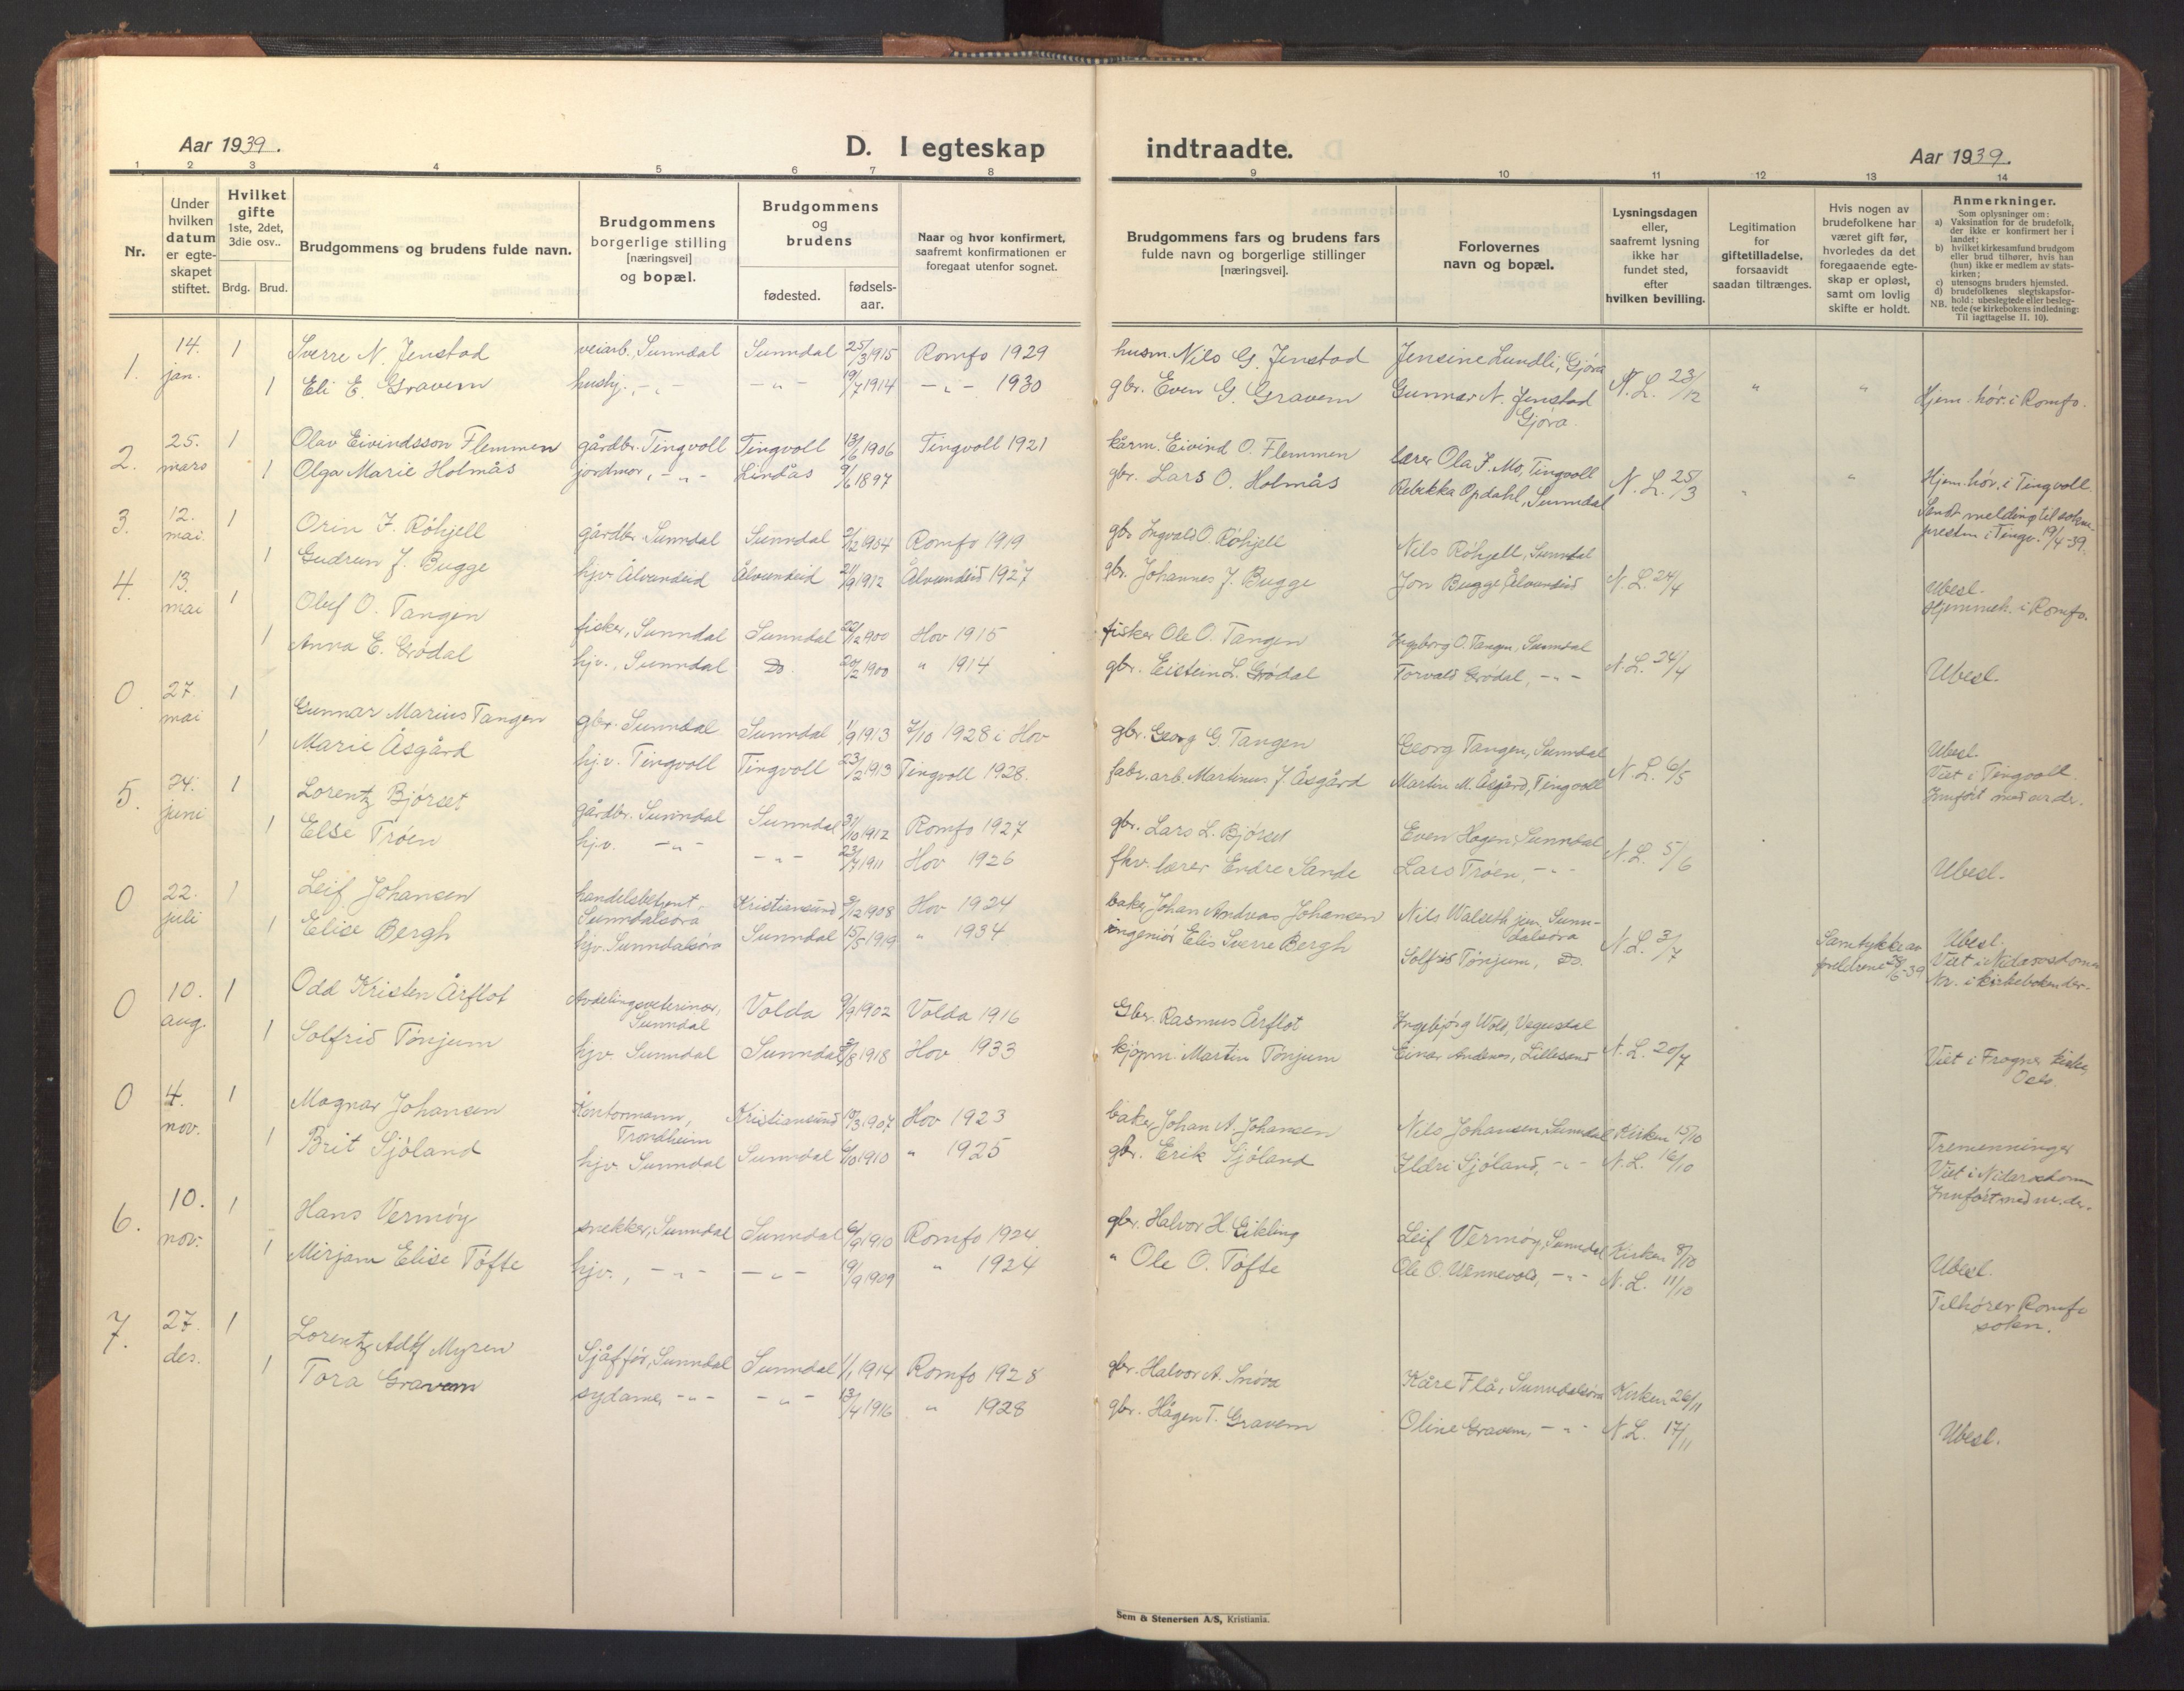 Aar 1939.
D. I egteskap
indtraadte.
Aar 1939.
1 2 3 4 5 6 7 8 9 10 11 12 13 14
Nr.
Under hvilken datum er egteskapet stiftet.
Hvilket gifte 1ste, 2det, 3die osv..
Brdg. Brud.
Brudgommens og brudens fulde navn.
Brudgommens borgerlige stilling [næringsvei] og bopæl.
Brudgommens og brudens
fødested.
fødsels-aar.
Naar og hvor konfirmert, saafremt konfirmationen er foregaat utenfor sognet.
Brudgommens fars og brudens fars fulde navn og borgerlige stillinger [næringsvei].
Forlovernes navn og bopæl.
Lysningsdagen eller, saafremt lysning ikke har fundet sted, efter hvilken bevilling.
Legitimation for giftetilladelse, forsaavidt saadan tiltrænges.
Hvis nogen av brudefolkene har været gift før, hvorledes da det foregaaende egteskap er opløst, samt om lovlig skifte er holdt.
Anmerkninger.
Som oplysninger om:
a) Vaksination for de brudefolk, der ikke er konfirmert her i landet;
b) hvilket kirkesamfund brudgom eller brud tilhører, hvis han (hun) ikke er medlem av statskirken;
c) utensogns bruders hjemsted.
d) brudefolkenes slegtskapsforhold: ubeslegtede eller beslegtede (se kirkebokens indledning: Til iagttagelse II. 10).
NB.
1. 14. jan. 1 Sverre N. Jenstad veiarb. Sunndal Sunndal 25/3 1915 Romfo 1929 husm. Nils G. Jenstad Jensine Lundli, Gjøra
1 Eli E. Gravem hushj. -"- -"- 19/7 1914 -"- 1930 gbr. Even G. Gravem Gunnar N. Jenstad Gjøra N.L. 23/12 " " Hjem.hør. i Romfo.
2. 25. mars 1 Olav Eivindsson Flemmen gårdbr. Tingvoll Tingvoll 13/6 1906 Tingvoll 1921 kårm. Eivind O. Flemmen lærer Ola J. Mo, Tingvoll
1 Olga Marie Holmås jordmor, -"- Lindås 9/6 1897 gbr. Lars O. Holmås Rebekka Opdahl, Sunndal N.L. 25/3 " " Hjem.hør. i Tingvoll.
Sendt melding til soknepresten i Tingv. 19/4-39.
3. 12. mai 1 Orin I. Röhjell gårdbr. Sunndal Sunndal 2/12 1904 Romfo 1919 gbr. Ingvald O. Röhjell Nils Röhjell, Sunndal
1 Gudrun J. Bugge hjv. Ålvundeid Ålvundeid 21/9 1912 Ålvundeid 1927 gbr. Johannes J. Bugge Jon Bugge, Ålvundeid N.L. 24/4 Ubesl.
Hjemmeh. i Romfo.
4. 13. mai 1 Oluf O. Tangen fisker, Sunndal Sunndal 22/12 1900 Hov 1915 fisker Ole O. Tangen Ingeborg O. Tangen, Sunndal
1 Anna E. Grödal hjv., Sunndal Do. 20/2 1900 " 1914 gbr. Eistein L. Grödal Torvald Grödal, -"- N.L. 24/4 Ubesl.
0 27. mai 1 Gunnar Marius Tangen gbr. Sunndal Sunndal 1/9 1913 7/10 1928 i Hov gbr. Georg G. Tangen Georg Tangen, Sunndal
1 Marie Åsgård hjv. Tingvoll Tingvoll 23/2 1913 Tingvoll 1928. fabr.arb. Martinus J. Åsgård Martin M. Åsgård, Tingvoll N.L. 6/5 Ubesl.
Viet i Tingvoll.
Innfört med nr. der.
5. 24. juni 1 Lorentz Bjørset gårdbr. Sunndal Sunndal 31/10 1912 Romfo 1927 gbr. Lars L. Bjørset Even Hagen, Sunndal
1 Else Tröen hjv. -"- -"- 23/7 1911 Hov 1926 fhv. lærer Endre Sande Lars Tröen, -"- N.L. 5/6 Ubesl.
0 22. juli 1 Leif Johansen handelsbetjent. Sunndalsøra Kristiansund 9/12 1908 Hov 1924 baker Johan Andreas Johansen Nils Walseth jun. Sunndalsøra
1 Elise Bergh hjv. Sunndalsøra Sunndal 15/5 1919 " 1934 ingeniör Elis Sverre Bergh Solfrid Tönjum, Do. N.L. 3/7 Samtykke av foreldrene 28/6-39 Ubesl.
Viet i Nidarosdomen
Nr. i kirkeboken der.
0 10. aug. 1 Odd Kristen Årflot Avdelingsveterinær, Sunndal Volda 9/9 1902 Volda 1916 Gbr. Rasmus Årflot Ingebjörg Wold,
1 Solfrid Tönjum hjv. Sunndal Sunndal 3/8 1918 Hov 1933 kjöpm. Martin Tönjum Einar Andenes, Lillesand N.L. 20/7 Viet i Frogner kirke, Oslo.
0 4. nov. 1 Magnar Johansen Kontormann, Trondheim Kristiansund 10/3 1907 Hov 1923 baker Johan A. Johansen Nils Johansen, Sunndal Kirken 15/10
1 Brit Sjöland hjv. Sunndal Sunndal 6/10 1910 " 1925 gbr. Erik Sjöland Ildri Sjöland, -"- N.L. 16/10 Tremenninger
Viet i Nidarosdomen
Innfört med nr. der.
6. 10. nov. 1 Hans Vermøy snekker, Sunndal Sunndal 6/9 1910 Romfo 1924 gbr. Halvor H. Eikling Leif Vermøy, Sunndal Kirken 8/10
1 Mirjam Elise Töfte hjv., -"- -"- 19/9 1909 " 1924 " Ole O. Töfte Ole O. Vennevold, -"- N.L. 11/10 Ubesl.
Tilhører Romfo sokn.
7. 27. des. 1 Lorentz Adolf Myren Sjåffør, Sunndal Sunndal 1/1 1914 Romfo 1928 gbr. Halvor A. Snöva Kåre Flå, Sunndalsøra Kirken 26/11
1 Tora Gravem sydame, -"- -"- 13/4 1916 " 1928 gbr. Hågen T. Gravem Oline Gravem, -"- N.L. 17/11 Ubesl.
Sem & Stenersen A/S, Kristiania.